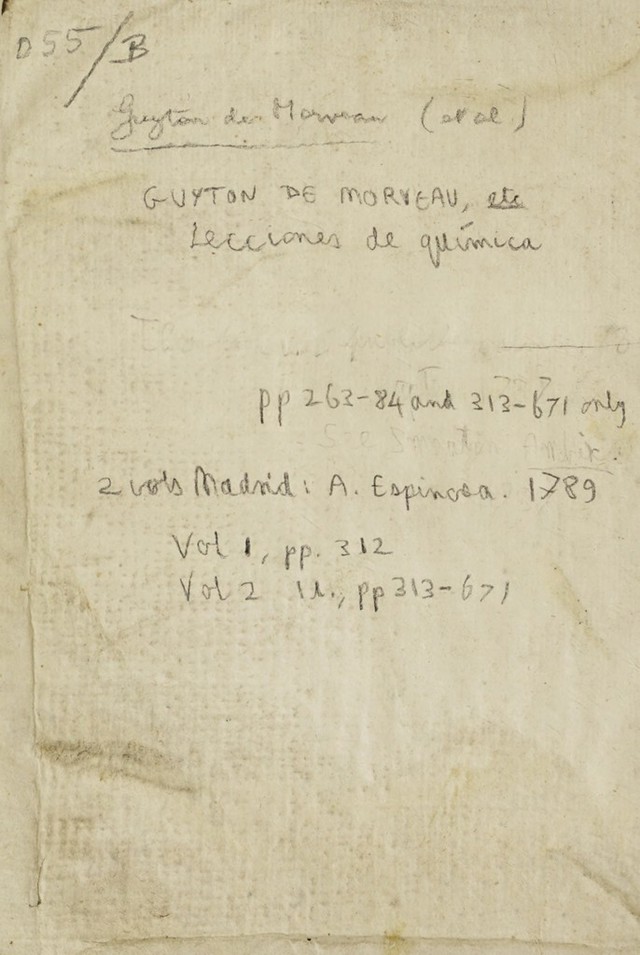 D55/B
Guyton de Morveau (et al)
GUYTON DE MORVEAU, etc
Lecciones de química
pp 263-84 and 313-671 only
2 vols Madrid: A. Espinosa. 1789
Vol 1, pp. 312
Vol 2 , pp 313-671